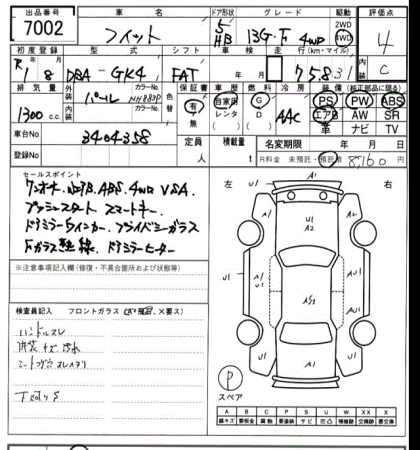 出品番号 車名 ドア形状 グレード 駆動 評価点
7002 フィット 5 HB 13G・F 4WD 2WD 4WD 4
初度登録 型式 シフト 車検 走行(km・マイル) 内装
R1 8 DBA-GK4 FAT 年 月 75,831 C
排気量 外装 カラーNo. 色替 保証書 車歴 燃料 冷房 装備(純正部品に限る)
1300 c.c. パール NH883P 有 自家用 G AAC PS PW ABS
内装 カラーNo. 無 レンタ D エアB AW SR
革 ナビ TV
車台No 3404358 定員 積載量 名変期限 年 月 日
登録No 人 t R料金 未預託・預託済 8,160 円
セールスポイント
ワンオーナー、ABS、4WD VSA、
プッシュスタート スマートキー、
ドアミラーウインカー、プライバシーガラス
Fガラス熱線、ドアミラーヒーター
左 右
※注意事項記入欄(修復・不具合箇所および状態等)
検査員記入 フロントガラス(✕要ス)
ハンドルスレ
内装キズ汚れ
下廻りS
A1
U1
A2
A1
U1
U1
A1
U1
A2
U1
AU1
U1
U1
A1
P
スペア
A B C P S U W X XX
線キズ 要板金 腐蝕 要塗装 サビ 凹凸 補修跡 交換跡 要交換